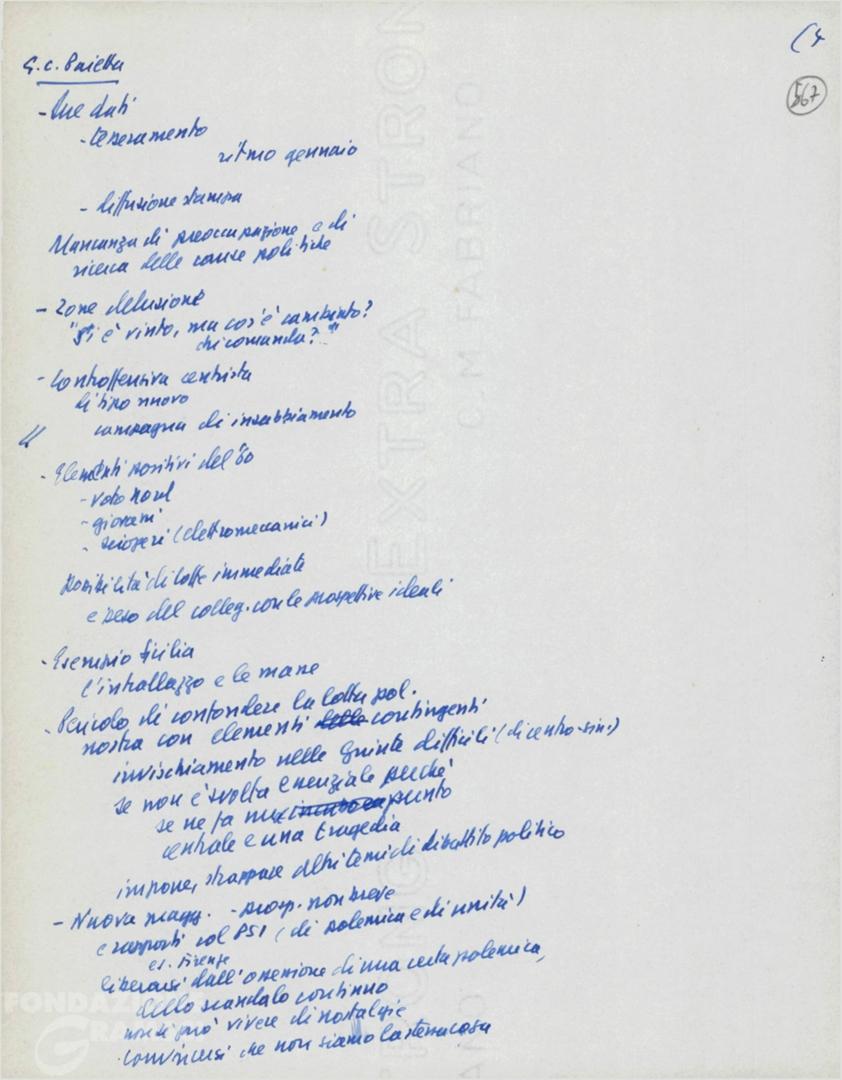 (4
567
G.C. Paietta
- Due dati
- tesseramento
ritmo gennaio
- diffusione stampa
Mancanza di preoccupazione e di
ricerca delle cause politiche
- Zone delusione
"Si è vinto, ma cos'è cambiato?
chi comanda?"
- Controffensiva centrista
di tipo nuovo
campagna di insabbiamento
- Elementi positivi del '60
- voto nov.
- giovani
- scioperi (elettromeccanici)
Possibilità di lotte immediate
e peso del colleg. con le prospettive ideali
- Esempio Sicilia
l'intrallazzo e le masse
- Pericolo di confondere la lotta pol.
nostra con elementi delle contingenti
invischiamento nelle Giunte difficili (di centro-sin.)
se non è svolta essenziale perché
se ne fa un punto
centrale e una tragedia
imporre, strappare altri temi di dibattito politico
- Nuova magg. - prosp. non breve
e rapporti col PSI (di polemica e di unità)
es. Firenze
liberarsi dall'ossessione di una certa polemica,
dello scandalo continuo
non si può vivere di nostalgie
convincersi che non siamo la stessa cosa
EXTRA STRONG
C.M. FABRIANO
FONDAZIONE
GRAMSCI